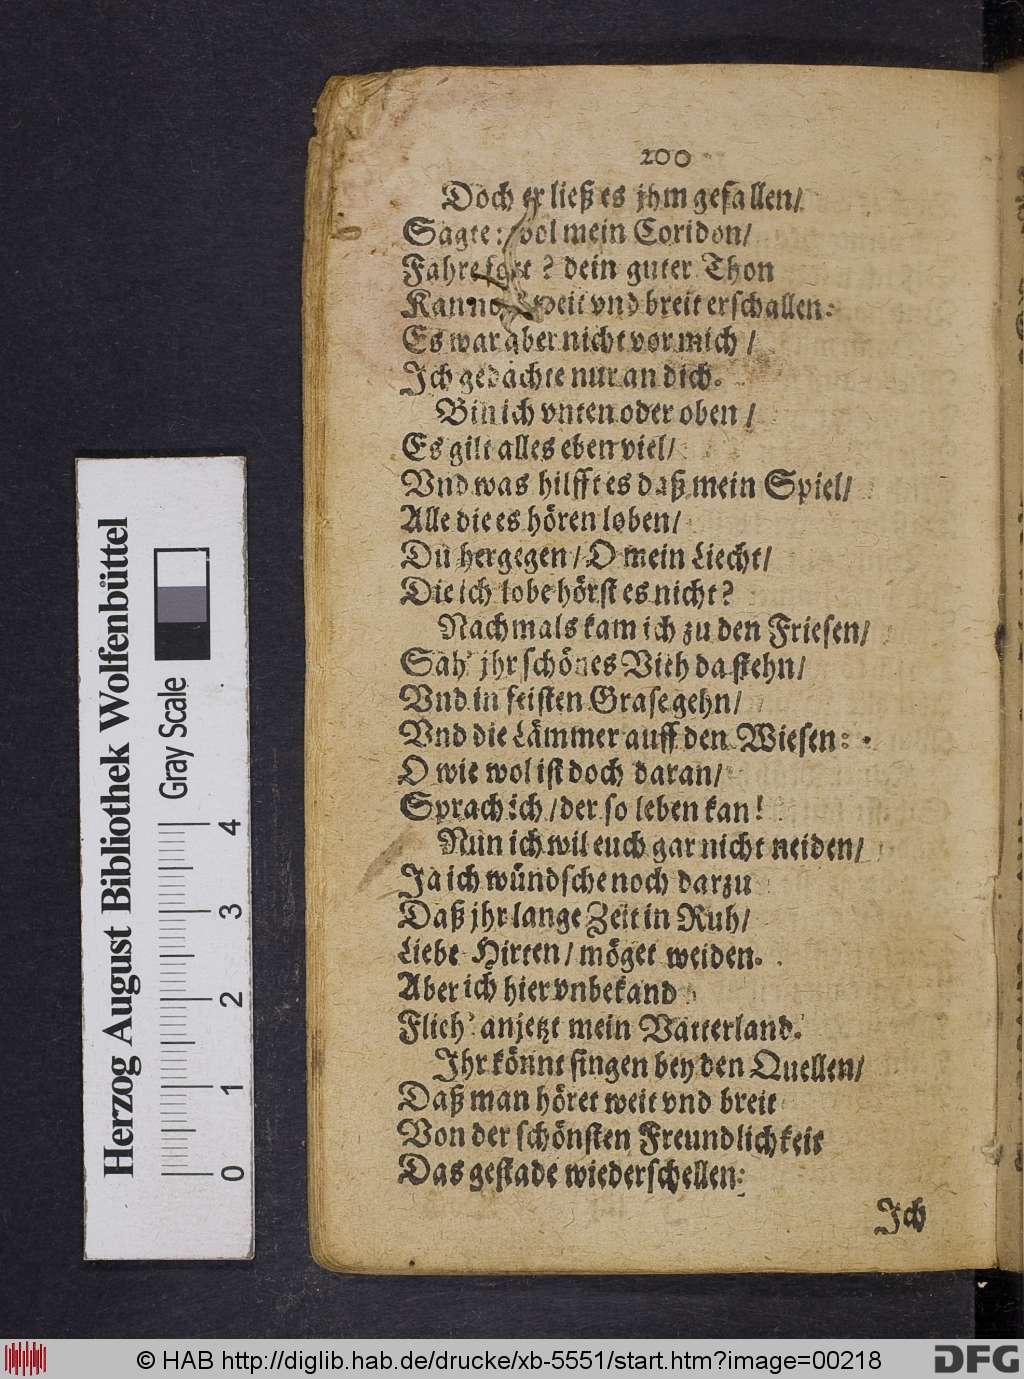 200
Doch er ließ es jhm gefallen/
Sagte: wol mein Coridon/
Fahre fort? dein guter Thon
Kan noch weit vnd breit erschallen:
Es war aber nicht vor mich/
Ich gedachte nur an dich.
Bin ich vnten oder oben/
Es gilt alles eben viel/
Vnd was hilfft es daß mein Spiel/
Alle die es hören loben/
Du hergegen/ O mein Liecht/
Die ich lobe hörst es nicht?
Nachmals kam ich zu den Friesen/
Sah' jhr schönes Vieh da stehn/
Vnd in feisten Grase gehn/
Vnd die Lämmer auff den Wiesen:
O wie wol ist doch daran/
Sprach ich/ der so leben kan!
Nun ich wil euch gar nicht neiden/
Ja ich wündsche noch darzu
Daß jhr lange Zeit in Ruh/
Liebe Hirten/ möget weiden.
Aber ich hier vnbekand
Flieh' anjetzt mein Vatterland.
Ihr könnt singen bey den Quellen/
Daß man höret weit vnd breit
Von der schönsten Freundlichkeit
Das gestade wiederschellen:
Ich
Herzog August Bibliothek Wolfenbüttel
Gray Scale
0 1 2 3 4
© HAB http://diglib.hab.de/drucke/xb-5551/start.htm?image=00218
DFG